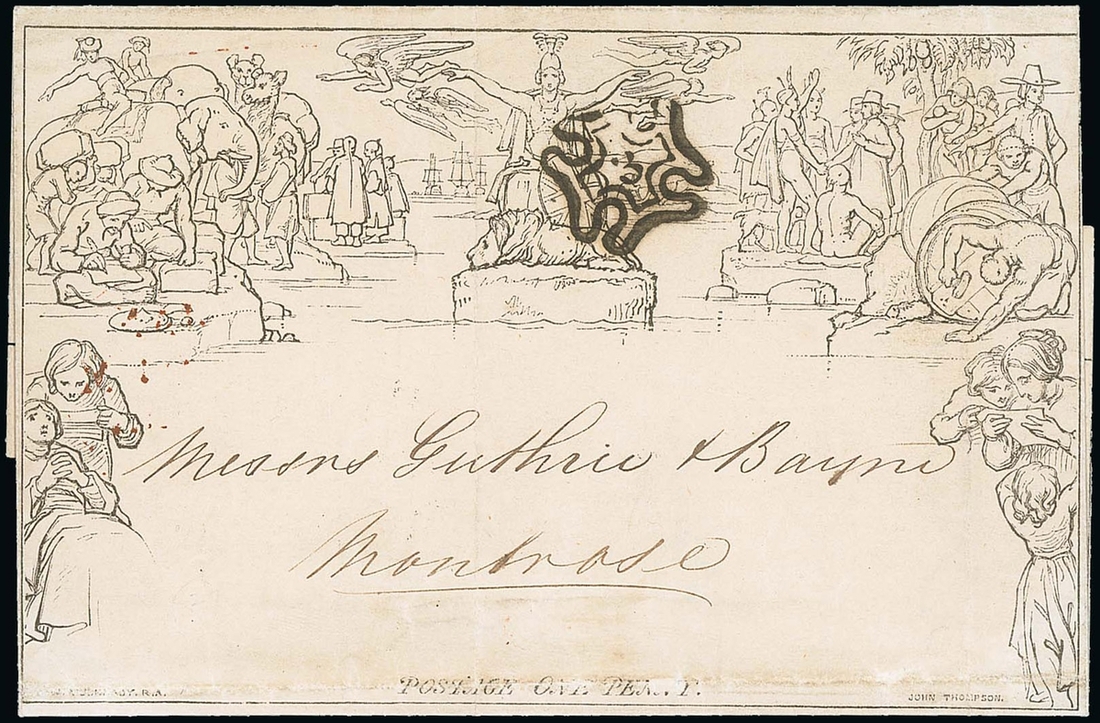 Messrs Guthrie & Bayne
Montrose
POSTAGE ONE PENNY.
W. MULREADY. R.A.
JOHN THOMPSON.